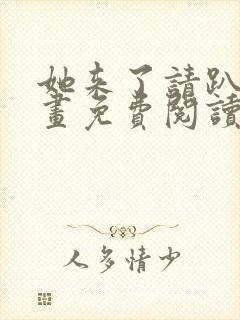 她来了請趴
畫免費閱讀
人多情少